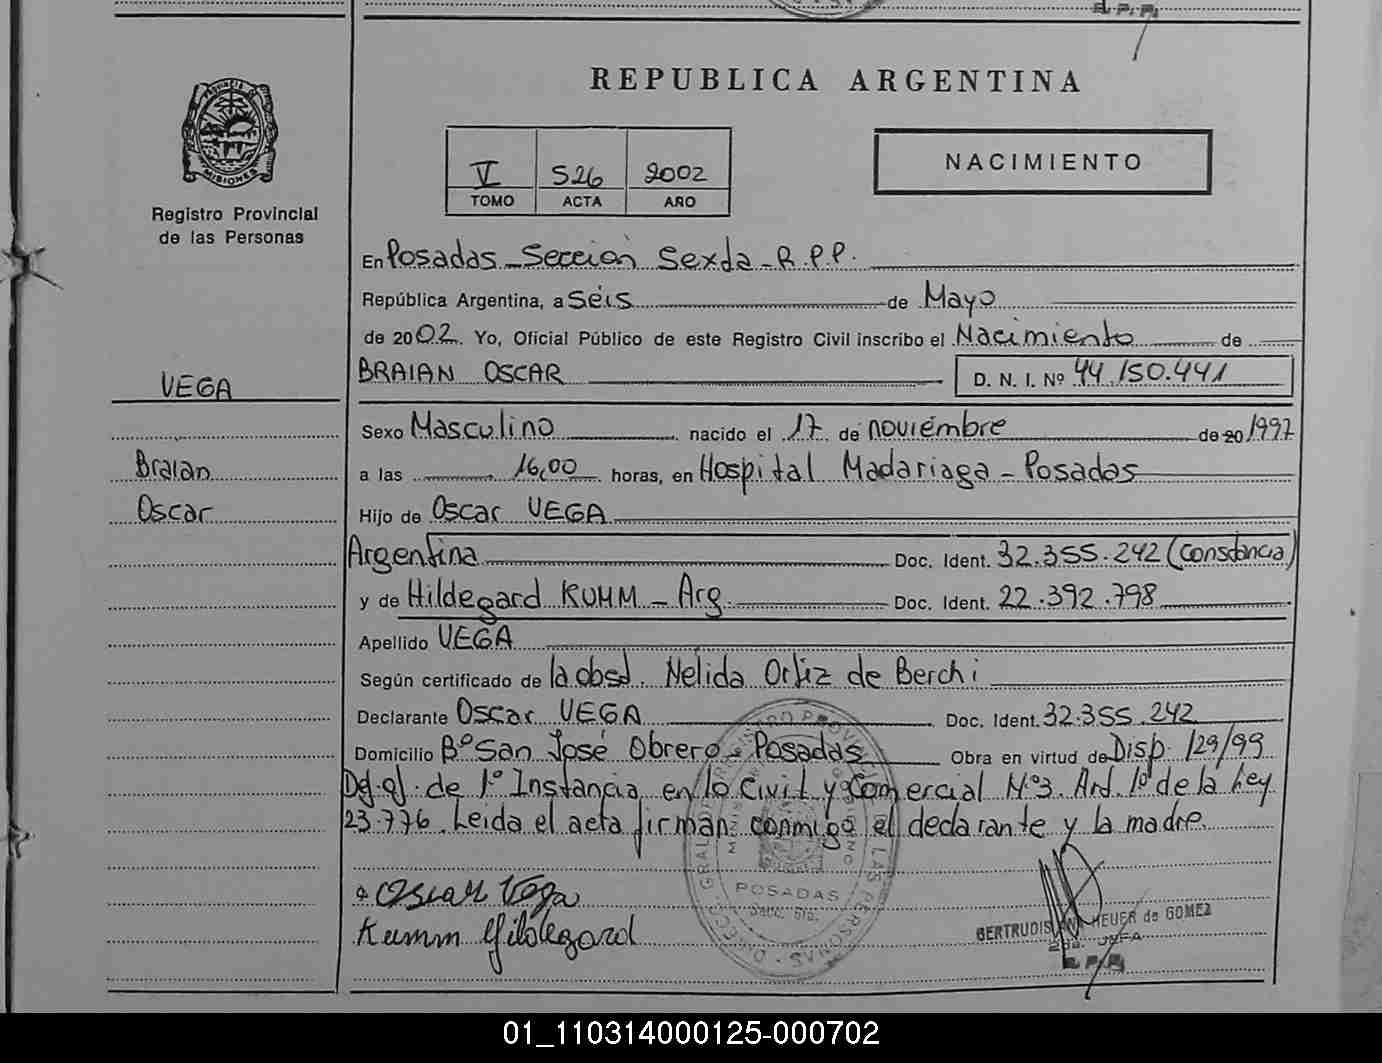 REPUBLICA ARGENTINA
PROVINCIA DE
MISIONES
Registro Provincial
de las Personas
V 526 2002
TOMO ACTA AÑO
NACIMIENTO
En Posadas - Sección Sexda - R.P.P.
República Argentina, a Séis de Mayo
de 2002. Yo, Oficial Público de este Registro Civil inscribo el Nacimiento de
BRAIAN OSCAR D. N. I. Nº 44.150.441
VEGA
Sexo Masculino nacido el 17 de noviémbre de 20 1997
Braian
a las 16,00 horas, en Hospital Madariaga - Posadas
Oscar
Hijo de Oscar VEGA
Argentina Doc. Ident. 32.355.242 (constancia)
y de Hildegard KUMM - Arg. Doc. Ident. 22.392.798
Apellido VEGA
Según certificado de la obsd. Nelida Ortiz de Berchi
Declarante Oscar VEGA Doc. Ident. 32.355.242
Domicilio Bº San José Obrero - Posadas Obra en virtud de Disp. 129/99
de 1º Instancia en lo Civil y Comercial Nº3. Art. 1º de la Ley
23.776. Leida el acta firman conmigo el declarante y la madre.
Oscar Vega
Kumm Hildegard
POSADAS
Secc. 6ta.
GERTRUDIS HEUER de GOMEZ
2da. JEFA
R.P.P.
01_110314000125-000702